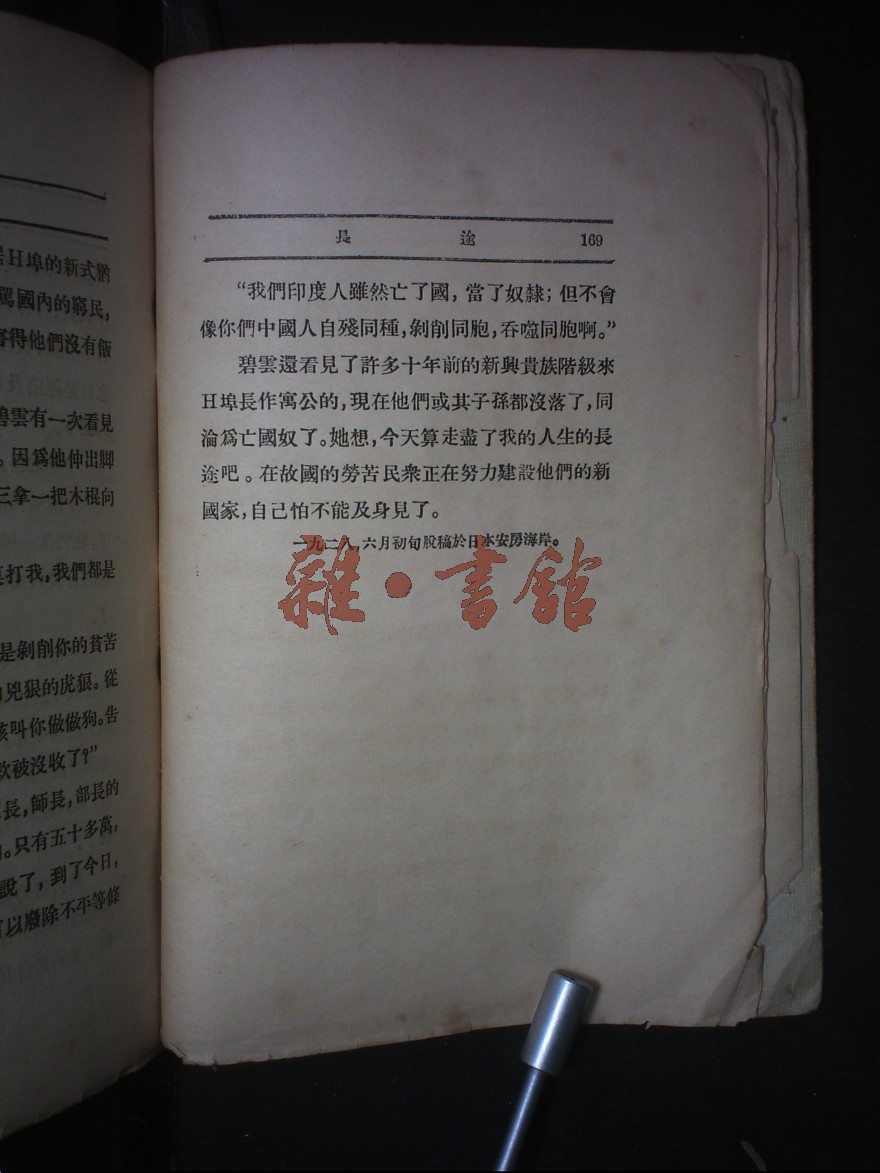 居H埠的新式猶
罵國內的窮民,
害得他們沒有飯
碧雲有一次看見
。因爲他伸出脚
三拿一把木棍向
打我,我們都是
是剝削你的貧苦
兇狠的虎狼。從
該叫你做做狗。告
款被沒收了?”
長,師長,部長的
。只有五十多萬,
說了,到了今日,
可以廢除不平等條
長 途 169
“我們印度人雖然亡了國,當了奴隸;但不會
像你們中國人自殘同種,剝削同胞,吞噬同胞啊。”
碧雲還看見了許多十年前的新興貴族階級來
H埠長作寓公的,現在他們或其子孫都沒落了,同
淪爲亡國奴了。她想,今天算走盡了我的人生的長
途吧。在故國的勞苦民衆正在努力建設他們的新
國家,自己怕不能及身見了。
一九二八,六月初旬脫稿於日本安房海岸。
雜·書館